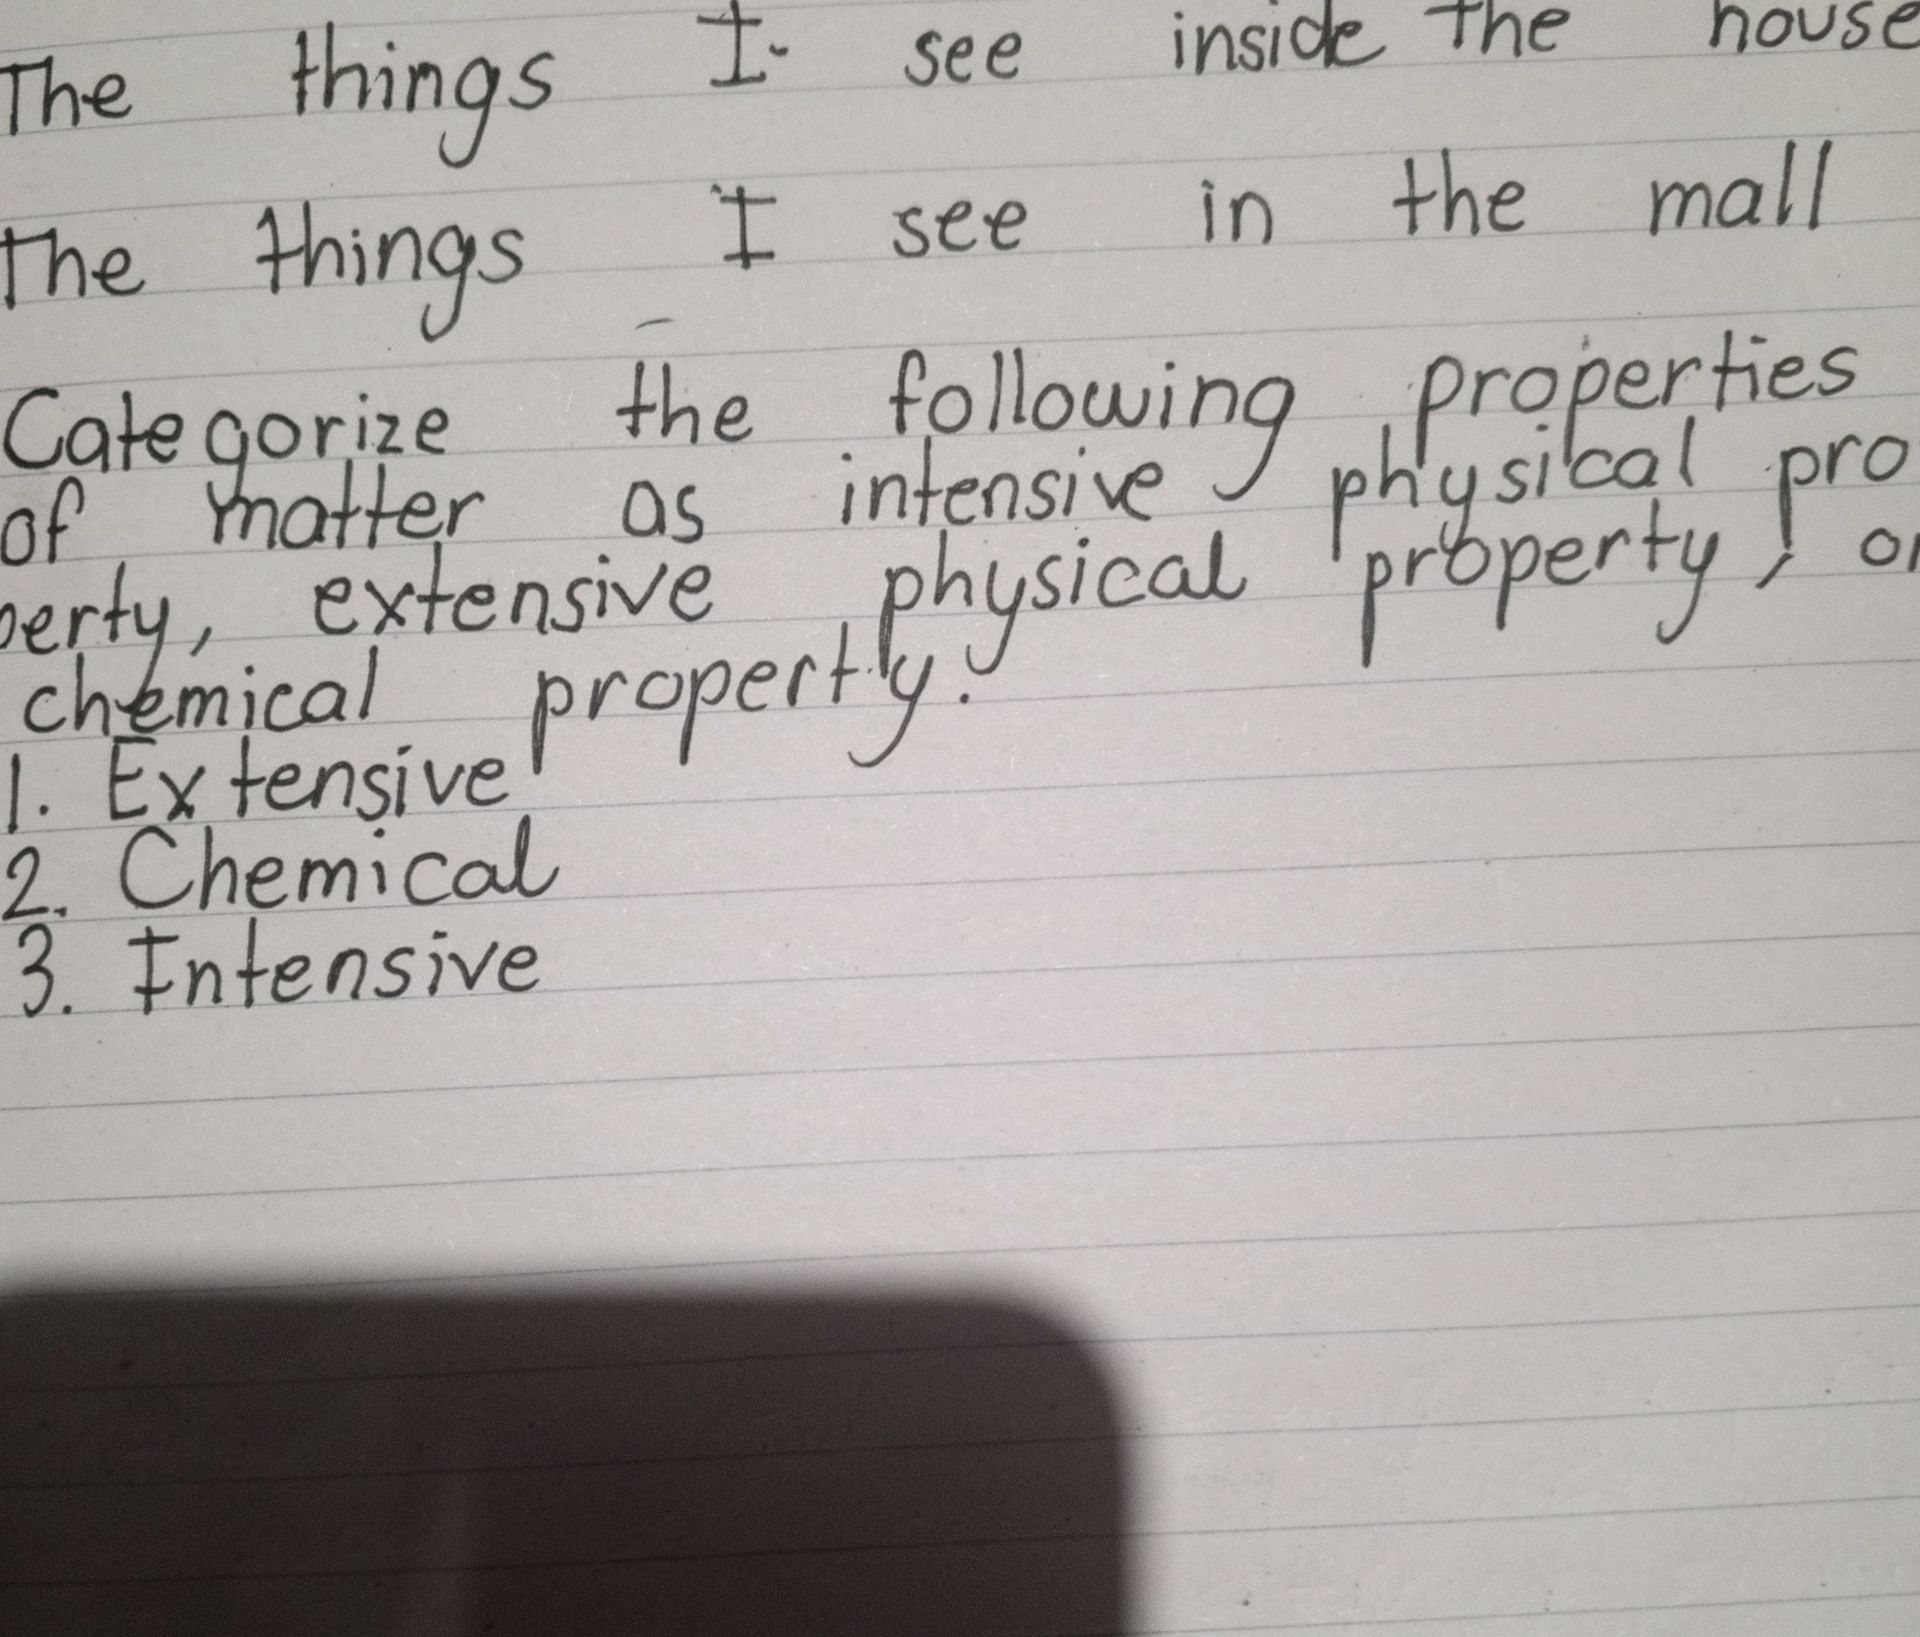 The things I see inside the house
The things I see in the mall
Categorize the following properties
of matter as intensive physical pro
perty, extensive physical property, or
chemical property.
1. Extensive
2. Chemical
3. Intensive